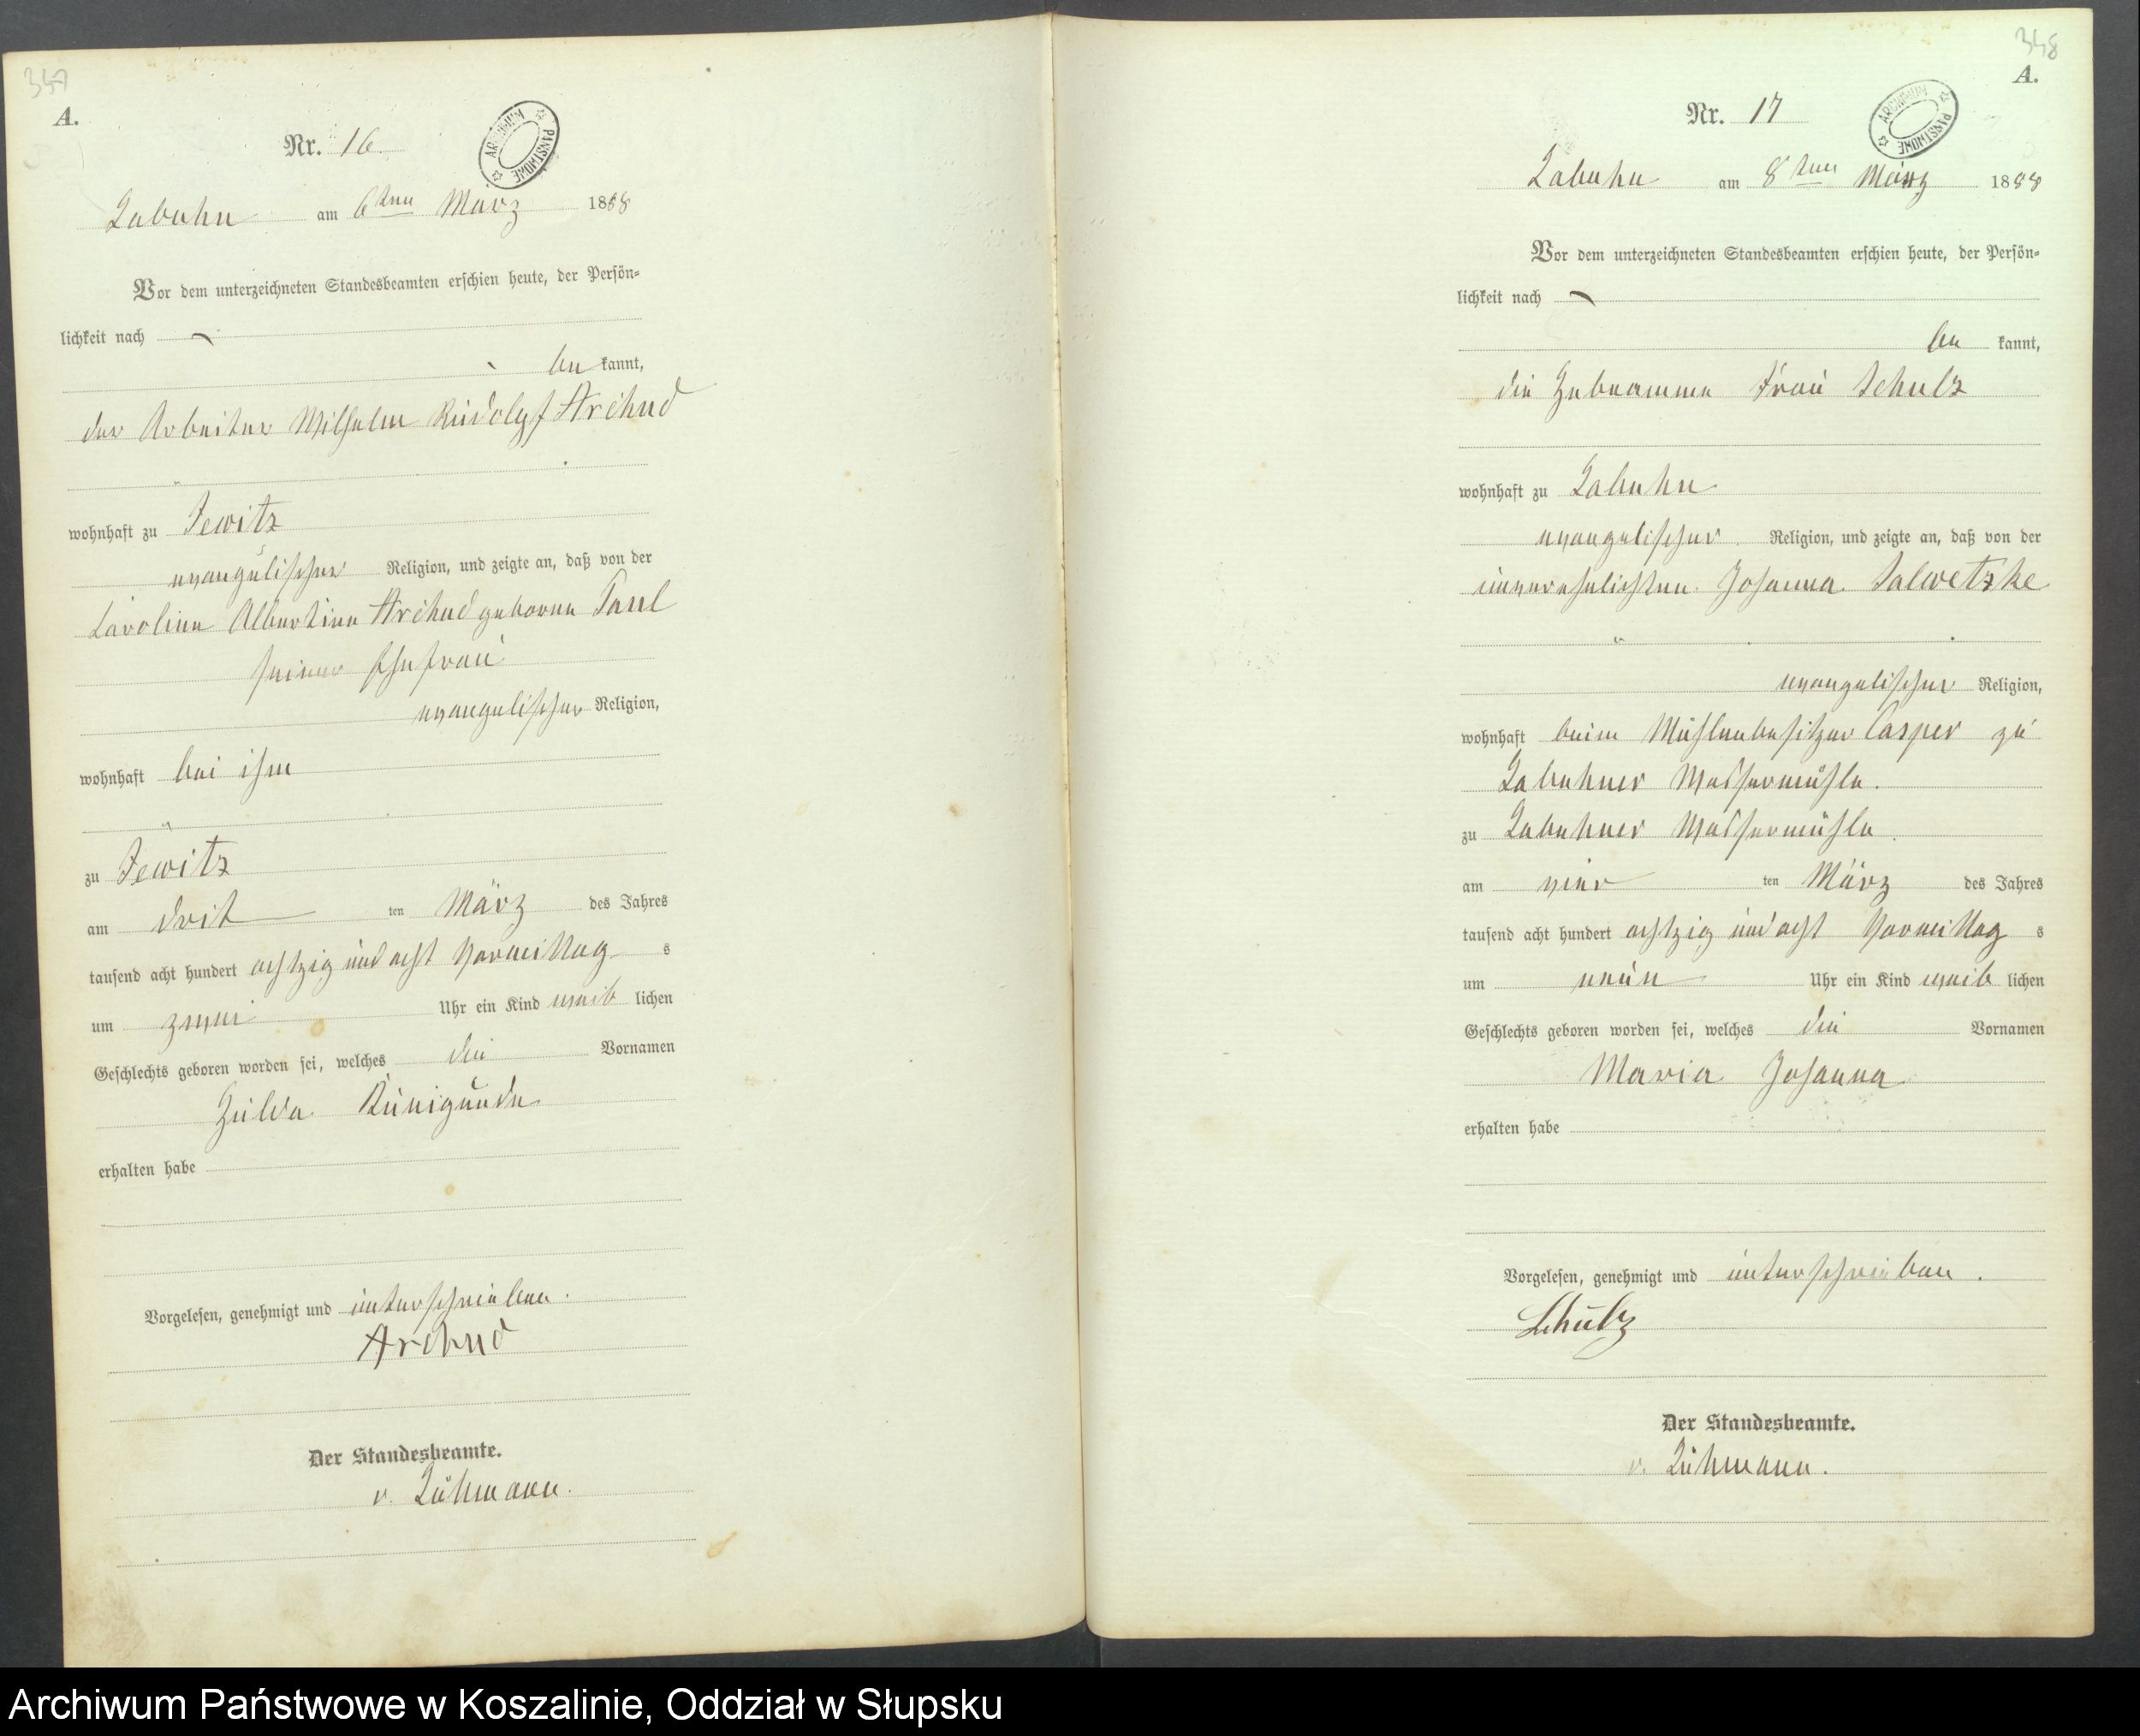 347
A.
Nr. 16.
ARCHIWUM PAŃSTWOWE
Labuhn am 6ten März 1888
Vor dem unterzeichneten Standesbeamten erschien heute, der Persön-
lichkeit nach
be kannt,
der Arbeiter Wilhelm Rudolph Archud
wohnhaft zu Jewitz
evangelischer Religion, und zeigte an, daß von der
Caroline Albertine Archud geborne
seiner Ehefrau
evangelischer Religion,
wohnhaft bei ihm
zu Jewitz
am drit ten März des Jahres
tausend acht hundert achtzig und acht Vormittag s
um zwei Uhr ein Kind weib lichen
Geschlechts geboren worden sei, welches die Vornamen
Hulda Kunigunde
erhalten habe
Vorgelesen, genehmigt und unterschrieben.
Archud
Der Standesbeamte.
v. Lühmann.
348
A.
Nr. 17
ARCHIWUM PAŃSTWOWE
Labuhn am 8ten März 1888
Vor dem unterzeichneten Standesbeamten erschien heute, der Persön-
lichkeit nach
be kannt,
die Hebeamme Frau Schulz
wohnhaft zu Labuhn
evangelischer Religion, und zeigte an, daß von der
unverehelichten Johanna Salwetzke
evangelischer Religion,
wohnhaft beim Mühlenbesitzer Casper zu
Labuhner Wassermühle.
zu Labuhner Wassermühle.
am vier ten März des Jahres
tausend acht hundert achtzig und acht Vormittag s
um neun Uhr ein Kind weib lichen
Geschlechts geboren worden sei, welches die Vornamen
Maria Johanna
erhalten habe
Vorgelesen, genehmigt und unterschrieben.
Schulz
Der Standesbeamte.
v. Lühmann.
Archiwum Państwowe w Koszalinie, Oddział w Słupsku